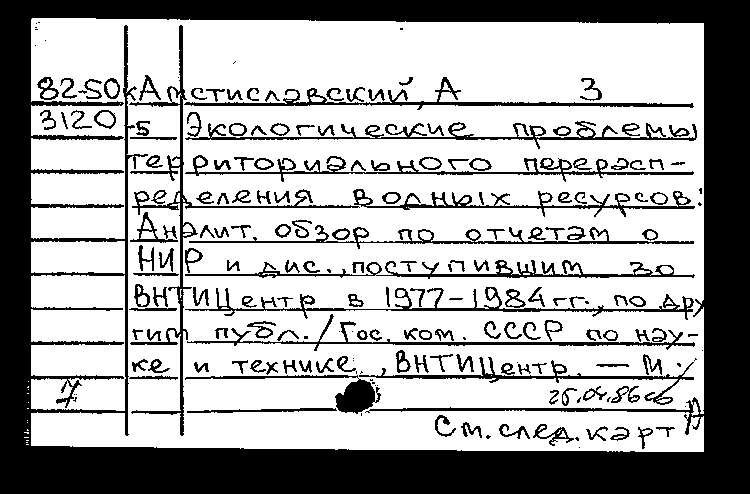 82-50к Амстиславский, А З
3120-5 Экологические проблемы
территориального перерасп-
ределения водных ресурсов:
Аналит. обзор по отчетам о
НИР и дис., поступившим во
ВНТИЦентр в 1977-1984 гг., по дру
гим публ. / Гос. ком. СССР по нау-
ке и технике, ВНТИЦентр. — М.:
7 25.04.86
См. след. карт